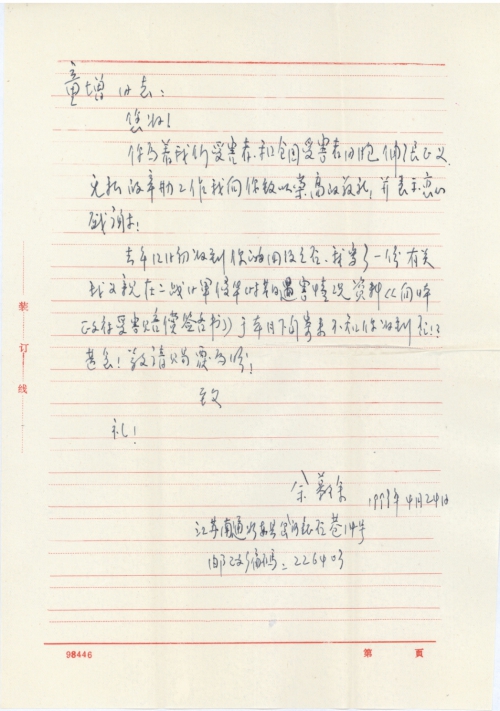 童增同志:
您好!
你为着我们受害者和全国受害者同胞伸张正义
无私的辛勤工作我向你致以崇高的敬礼,并表示衷心
感谢!
去年12月初收到你的回信后,我寄了一份有关
我父亲在二战日军侵华时期遇害情况资料《向日
政府受害赔偿签名书》于年月下旬寄来不知你收到否!?
甚念!敬请赐票为盼!
致
礼!
余 1993年4月24日
江苏南通 巷14号
邮政编码:226403
装订线
98446
第 页